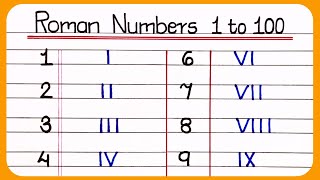 Roman Numbers 1 to 100
1 I 6 VI
2 II 7 VII
3 III 8 VIII
4 IV 9 IX